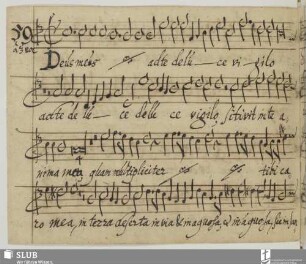 59
Deus meus ad te de lu - ce vi - gilo
ad te de lu - ce de lu ce vigilo, sitivit in te a
nima mea, quam multipliciter tibi ca
ro mea, in terra deserta in via & inaquosa, & inaquosa,
SLUB
Wir führen Wissen.